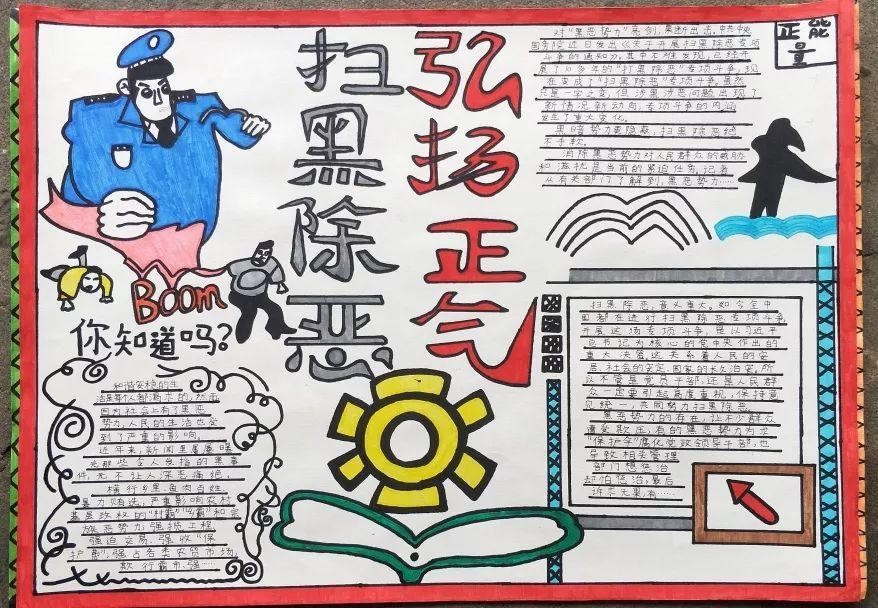 扫黑除恶
弘扬正气
正能
量
对"黑恶势力"亮剑,果断出击,中共中央
国务院近日发出《关于开展扫黑除恶专项
斗争的通知》,其中不难发现,已经开
展了10多年的"打黑除恶"专项斗争,现
在变成了"扫黑除恶"专项斗争,虽然
只是一字之变,但涉黑涉恶问题出现了
新情况新动向,专项斗争的内涵
发生了重大变化。
黑暗势力要隐蔽,扫黑除恶绝
不手软。
消除黑恶势力对人民群众的威胁
和滋扰是当前的紧迫任务,记者
从有关部门了解到,黑恶势力……
Boom
你知道吗?
和谐安稳的生
活是每个人都渴求的,然而
因为社会上有了黑恶
势力,人民的生活也受
到了严重的影响。
近年来,新闻里屡屡曝
光那些令人发指的黑事
件,无不让人深恶痛绝,
横行乡里,鱼肉百姓,
暴力贿选,严重影响农村
基层政权的"村霸""乡霸"和宗
族恶势力;强揽工程,
强迫交易,强收"保
护费",强占各类农贸市场,
欺行霸市,强……
扫黑除恶,意义重大。如今全中
国都在进行扫黑除恶专项斗争,
开展这场专项斗争,是以习近平
总书记为核心的党中央作出的
重大决策,这关系着人民的安
居,社会的安定,国家的长治久安。所
以不管是党员干部,还是人民群
众一定要引起高度重视,保持意
见统一,共同努力扫黑除恶。
黑恶势力的存在,让不少群众
遭受欺压,有的黑恶势力为求
"保护伞"腐化党政领导干部,也
导致相关管理
部门想惩治
却怕惩治,最后
近乎无果,有……